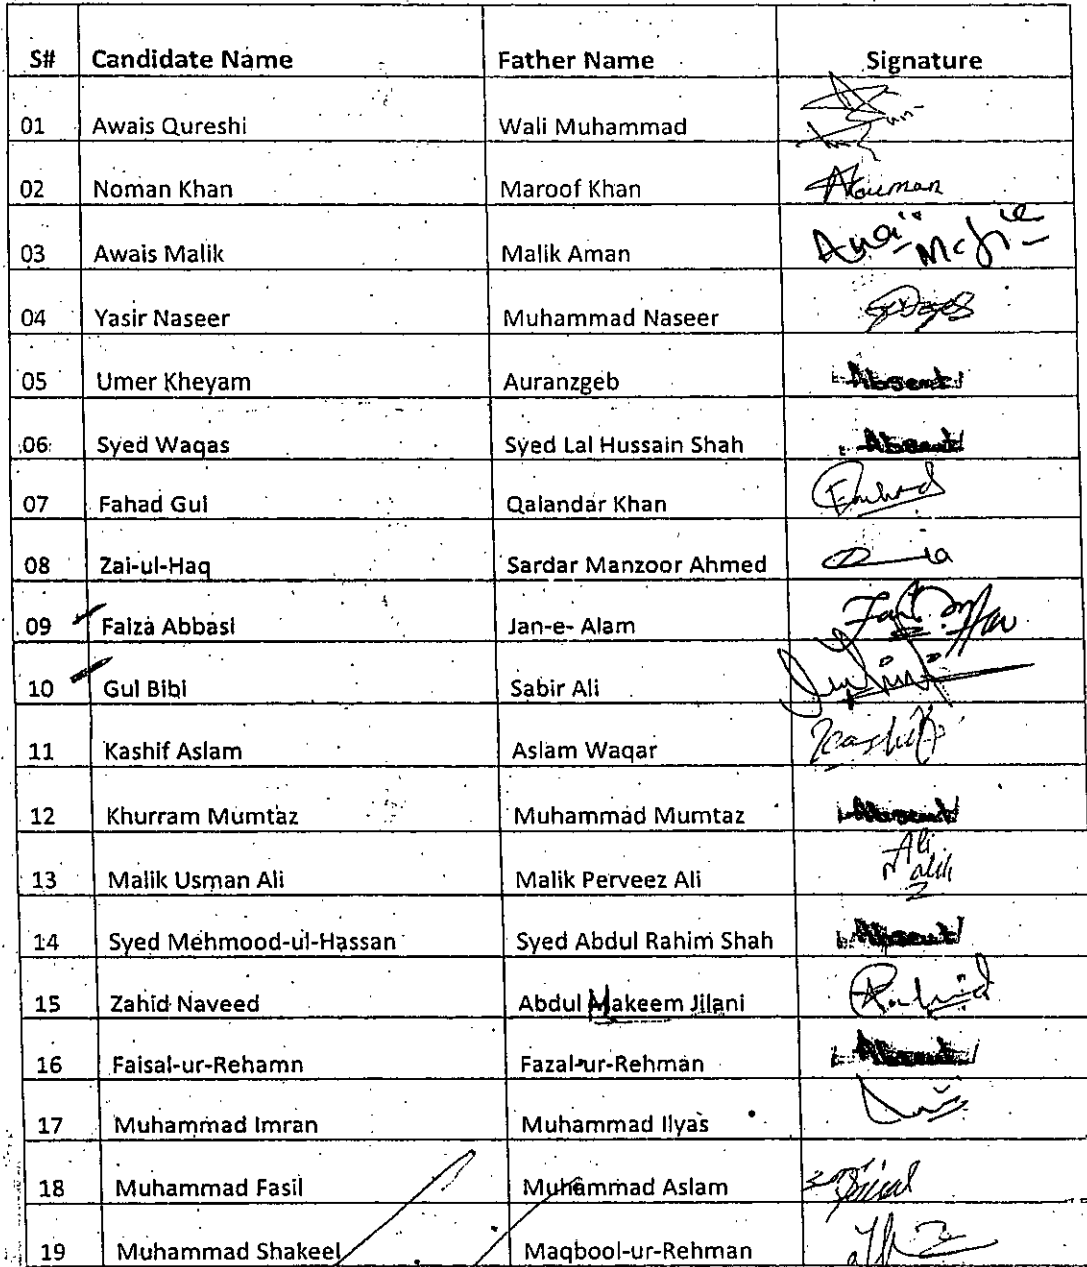 S# Candidate Name Father Name Signature
01 Awais Qureshi Wali Muhammad
02 Noman Khan Maroof Khan Nouman
03 Awais Malik Malik Aman
04 Yasir Naseer Muhammad Naseer
05 Umer Kheyam Auranzgeb Absent
06 Syed Waqas Syed Lal Hussain Shah Absent
07 Fahad Gul Qalandar Khan Fahad
08 Zai-ul-Haq Sardar Manzoor Ahmed
09 Faiza Abbasi Jan-e- Alam
10 Gul Bibi Sabir Ali
11 Kashif Aslam Aslam Waqar Kashif
12 Khurram Mumtaz Muhammad Mumtaz Absent
13 Malik Usman Ali Malik Perveez Ali Ali
14 Syed Mehmood-ul-Hassan Syed Abdul Rahim Shah Absent
15 Zahid Naveed Abdul Hakeem Jilani
16 Faisal-ur-Rehamn Fazal-ur-Rehman Absent
17 Muhammad Imran Muhammad Ilyas
18 Muhammad Fasil Muhammad Aslam
19 Muhammad Shakeel Maqbool-ur-Rehman